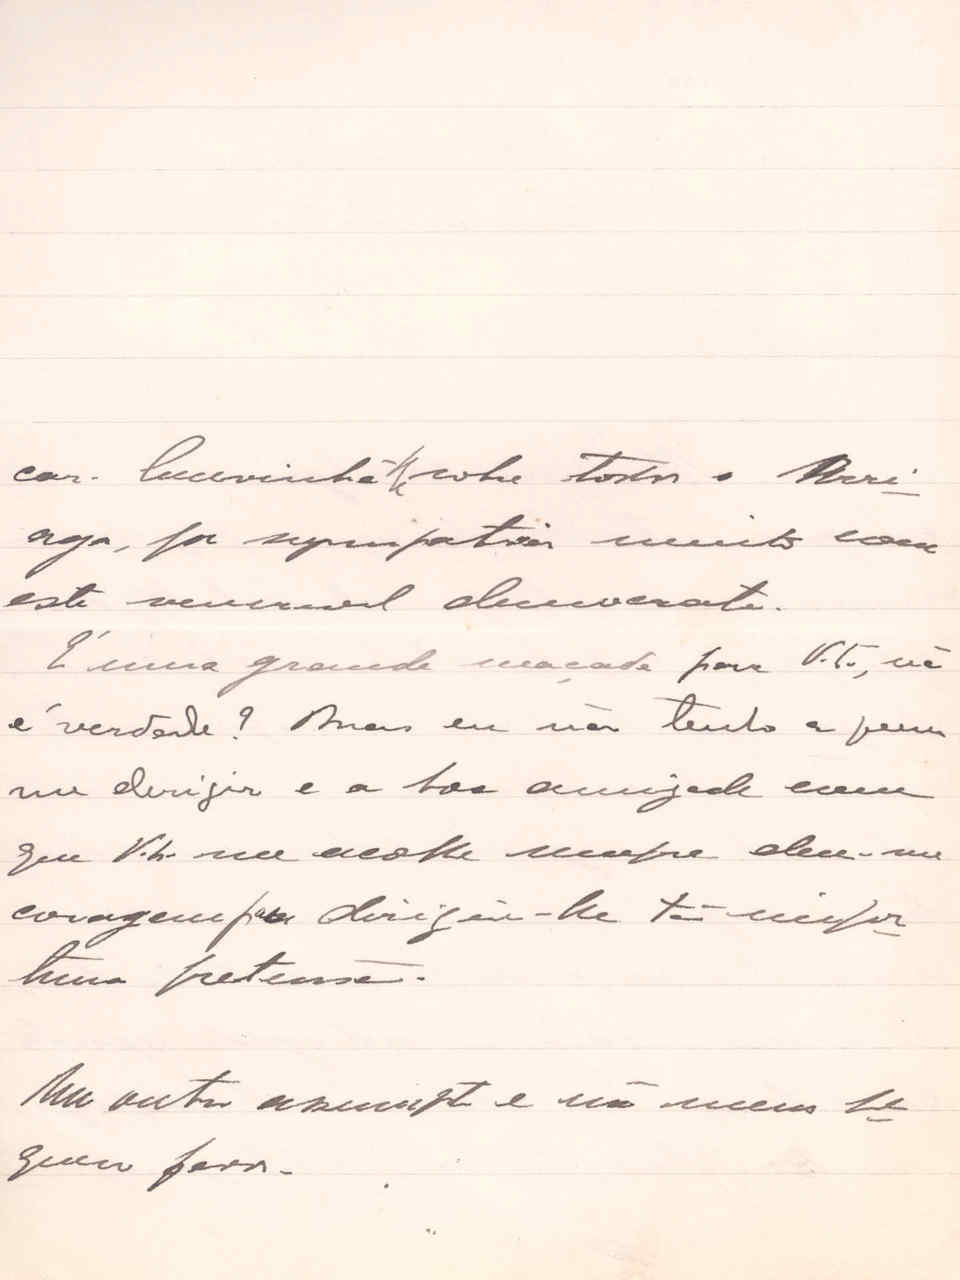 car. Convinha sobre todos o Arri-
aga, por sympathisar muito com
este veneravel democrata.
É uma grande maçada para V. Ex., não
é verdade? Mas eu não tenho a quem
me dirigir e a boa amizade com
que V. Ex. me acolhe sempre deu-me
coragem para dirigir-lhe tão inspor-
tuna pretensão.
Um outro assumpto e não menos pe-
queno favor.